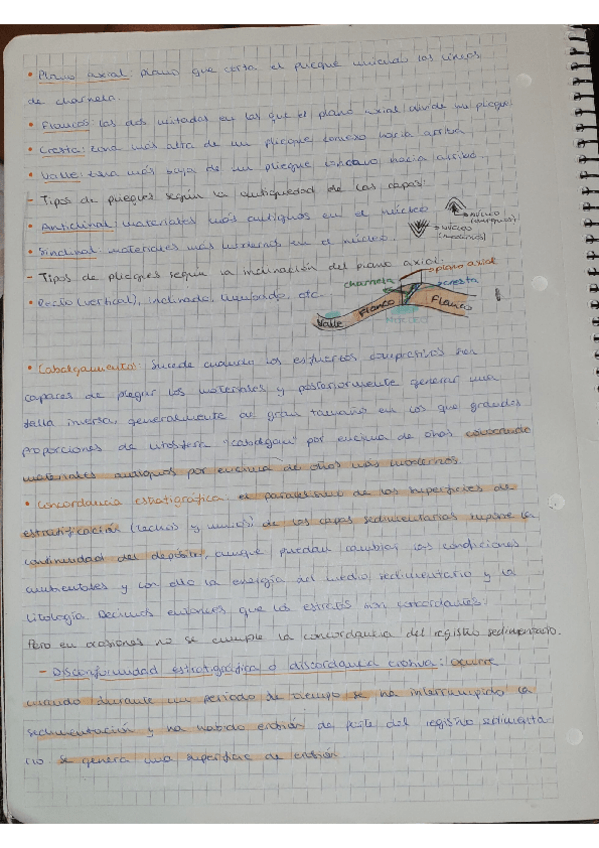 • Plano axial: plano que corta el pliegue uniendo las líneas
de charnela.
• Flancos: las dos mitades en las que el plano axial divide un pliegue
• Cresta: zona más alta de un pliegue convexo hacia arriba
• Valle: zona más baja de un pliegue cóncavo hacia arriba
- Tipos de pliegues según la antigüedad de las capas:
• Anticlinal: materiales más antiguos en el núcleo
→ núcleo
(antiguos)
• Sinclinal: materiales más modernos en el núcleo.
→ núcleo
(modernos)
- Tipos de pliegues según la inclinación del plano axial:
• Recto (vertical), inclinado, tumbado, etc.
charnela
plano axial
cresta
Valle
Flanco
Flanco
Núcleo
• Cabalgamiento: Sucede cuando los esfuerzos compresivos son
capaces de plegar los materiales y posteriormente generar una
falla inversa, generalmente de gran tamaño en los que grandes
proporciones de litosfera "cabalgan" por encima de otras colocando
materiales antiguos por encima de otros más modernos.
• Concordancia estratigráfica: el paralelismo de las superficies de
estratificación (techos y muros) de las capas sedimentarias supone la
continuidad del depósito, aunque puedan cambiar las condiciones
ambientales y con ello la energía del medio sedimentario y la
litología. Decimos entonces que los estratos son concordantes.
Pero en ocasiones no se cumple la concordancia del registro sedimentario.
- Disconformidad estratigráfica o discordancia erosiva: ocurre
cuando durante un período de tiempo se ha interrumpido la
sedimentación y ha habido erosión de parte del registro sedimenta
rio se genera una superficie de erosión